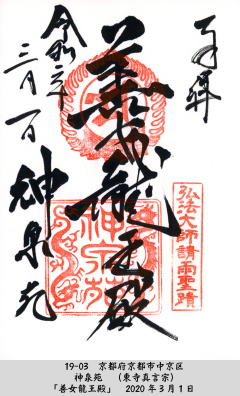 奉拝
弘法大師請雨聖蹟
善女龍王殿
神泉苑
令和二年
三月一日
神泉苑
19-03　京都府京都市中京区
神泉苑　（東寺真言宗）
「善女龍王殿」　2020年3月1日